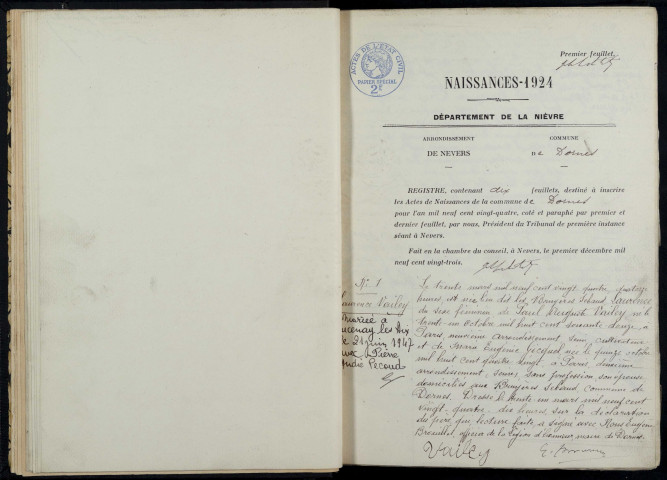 Premier feuillet,
ACTES DE L'ETAT CIVIL
PAPIER SPECIAL
2f
NAISSANCES-1924
DÉPARTEMENT DE LA NIÈVRE
ARRONDISSEMENT
COMMUNE
DE NEVERS
DE Dornes
REGISTRE, contenant dix feuillets, destiné à inscrire
les Actes de Naissances de la commune de Dornes
pour l'an mil neuf cent vingt-quatre, coté et paraphé par premier et
dernier feuillet, par nous, Président du Tribunal de première instance
séant à Nevers.
Fait en la chambre du conseil, à Nevers, le premier décembre mil
neuf cent vingt-trois.
N° 1
Laurence Vailey
Mariée à
Lucenay les Aix
le 21 juin 1947
avec Pierre
André Pecoud
Le trente mars mil neuf cent vingt quatre quatorze
heures, est née lieu dit les Bruyères Seband, Laurence
du sexe féminin de Vailey, né le
trente-un octobre mil huit cent soixante douze à
Paris neuvième arrondissement, cultivateur
et de Maria Eugénie née le quinze octobre
mil huit cent quatre vingt à Paris, deuxième
arrondissement, sans profession, son épouse
domiciliés aux Bruyères Seband, commune de
Dornes. Dressé le trente-un mars mil neuf cent
vingt-quatre dix heures sur la déclaration
du père, qui, lecture faite, a signé avec Nous Eugène
officier de la Légion d'honneur maire de Dornes
Vailey